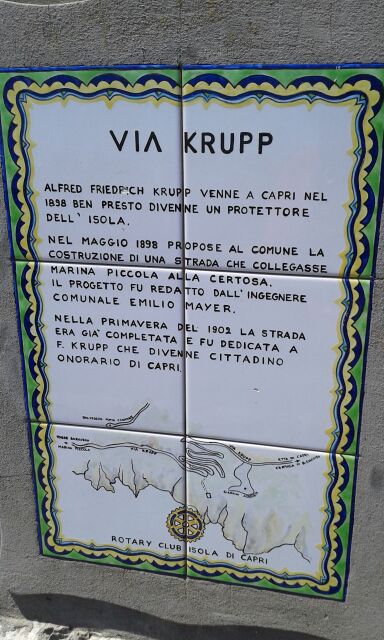 VIA KRUPP
ALFRED FRIEDRICH KRUPP VENNE A CAPRI NEL
1898 BEN PRESTO DIVENNE UN PROTETTORE
DELL' ISOLA.
NEL MAGGIO 1898 PROPOSE AL COMUNE LA
COSTRUZIONE DI UNA STRADA CHE COLLEGASSE
MARINA PICCOLA ALLA CERTOSA.
IL PROGETTO FU REDATTO DALL' INGEGNERE
COMUNALE EMILIO MAYER.
NELLA PRIMAVERA DEL 1902 LA STRADA
ERA GIA' COMPLETATA E FU DEDICATA A
F. KRUPP CHE DIVENNE CITTADINO
ONORARIO DI CAPRI.
MARINA PICCOLA
VIA KRUPP
VIA KRUPP
ROTARY CLUB ISOLA DI CAPRI